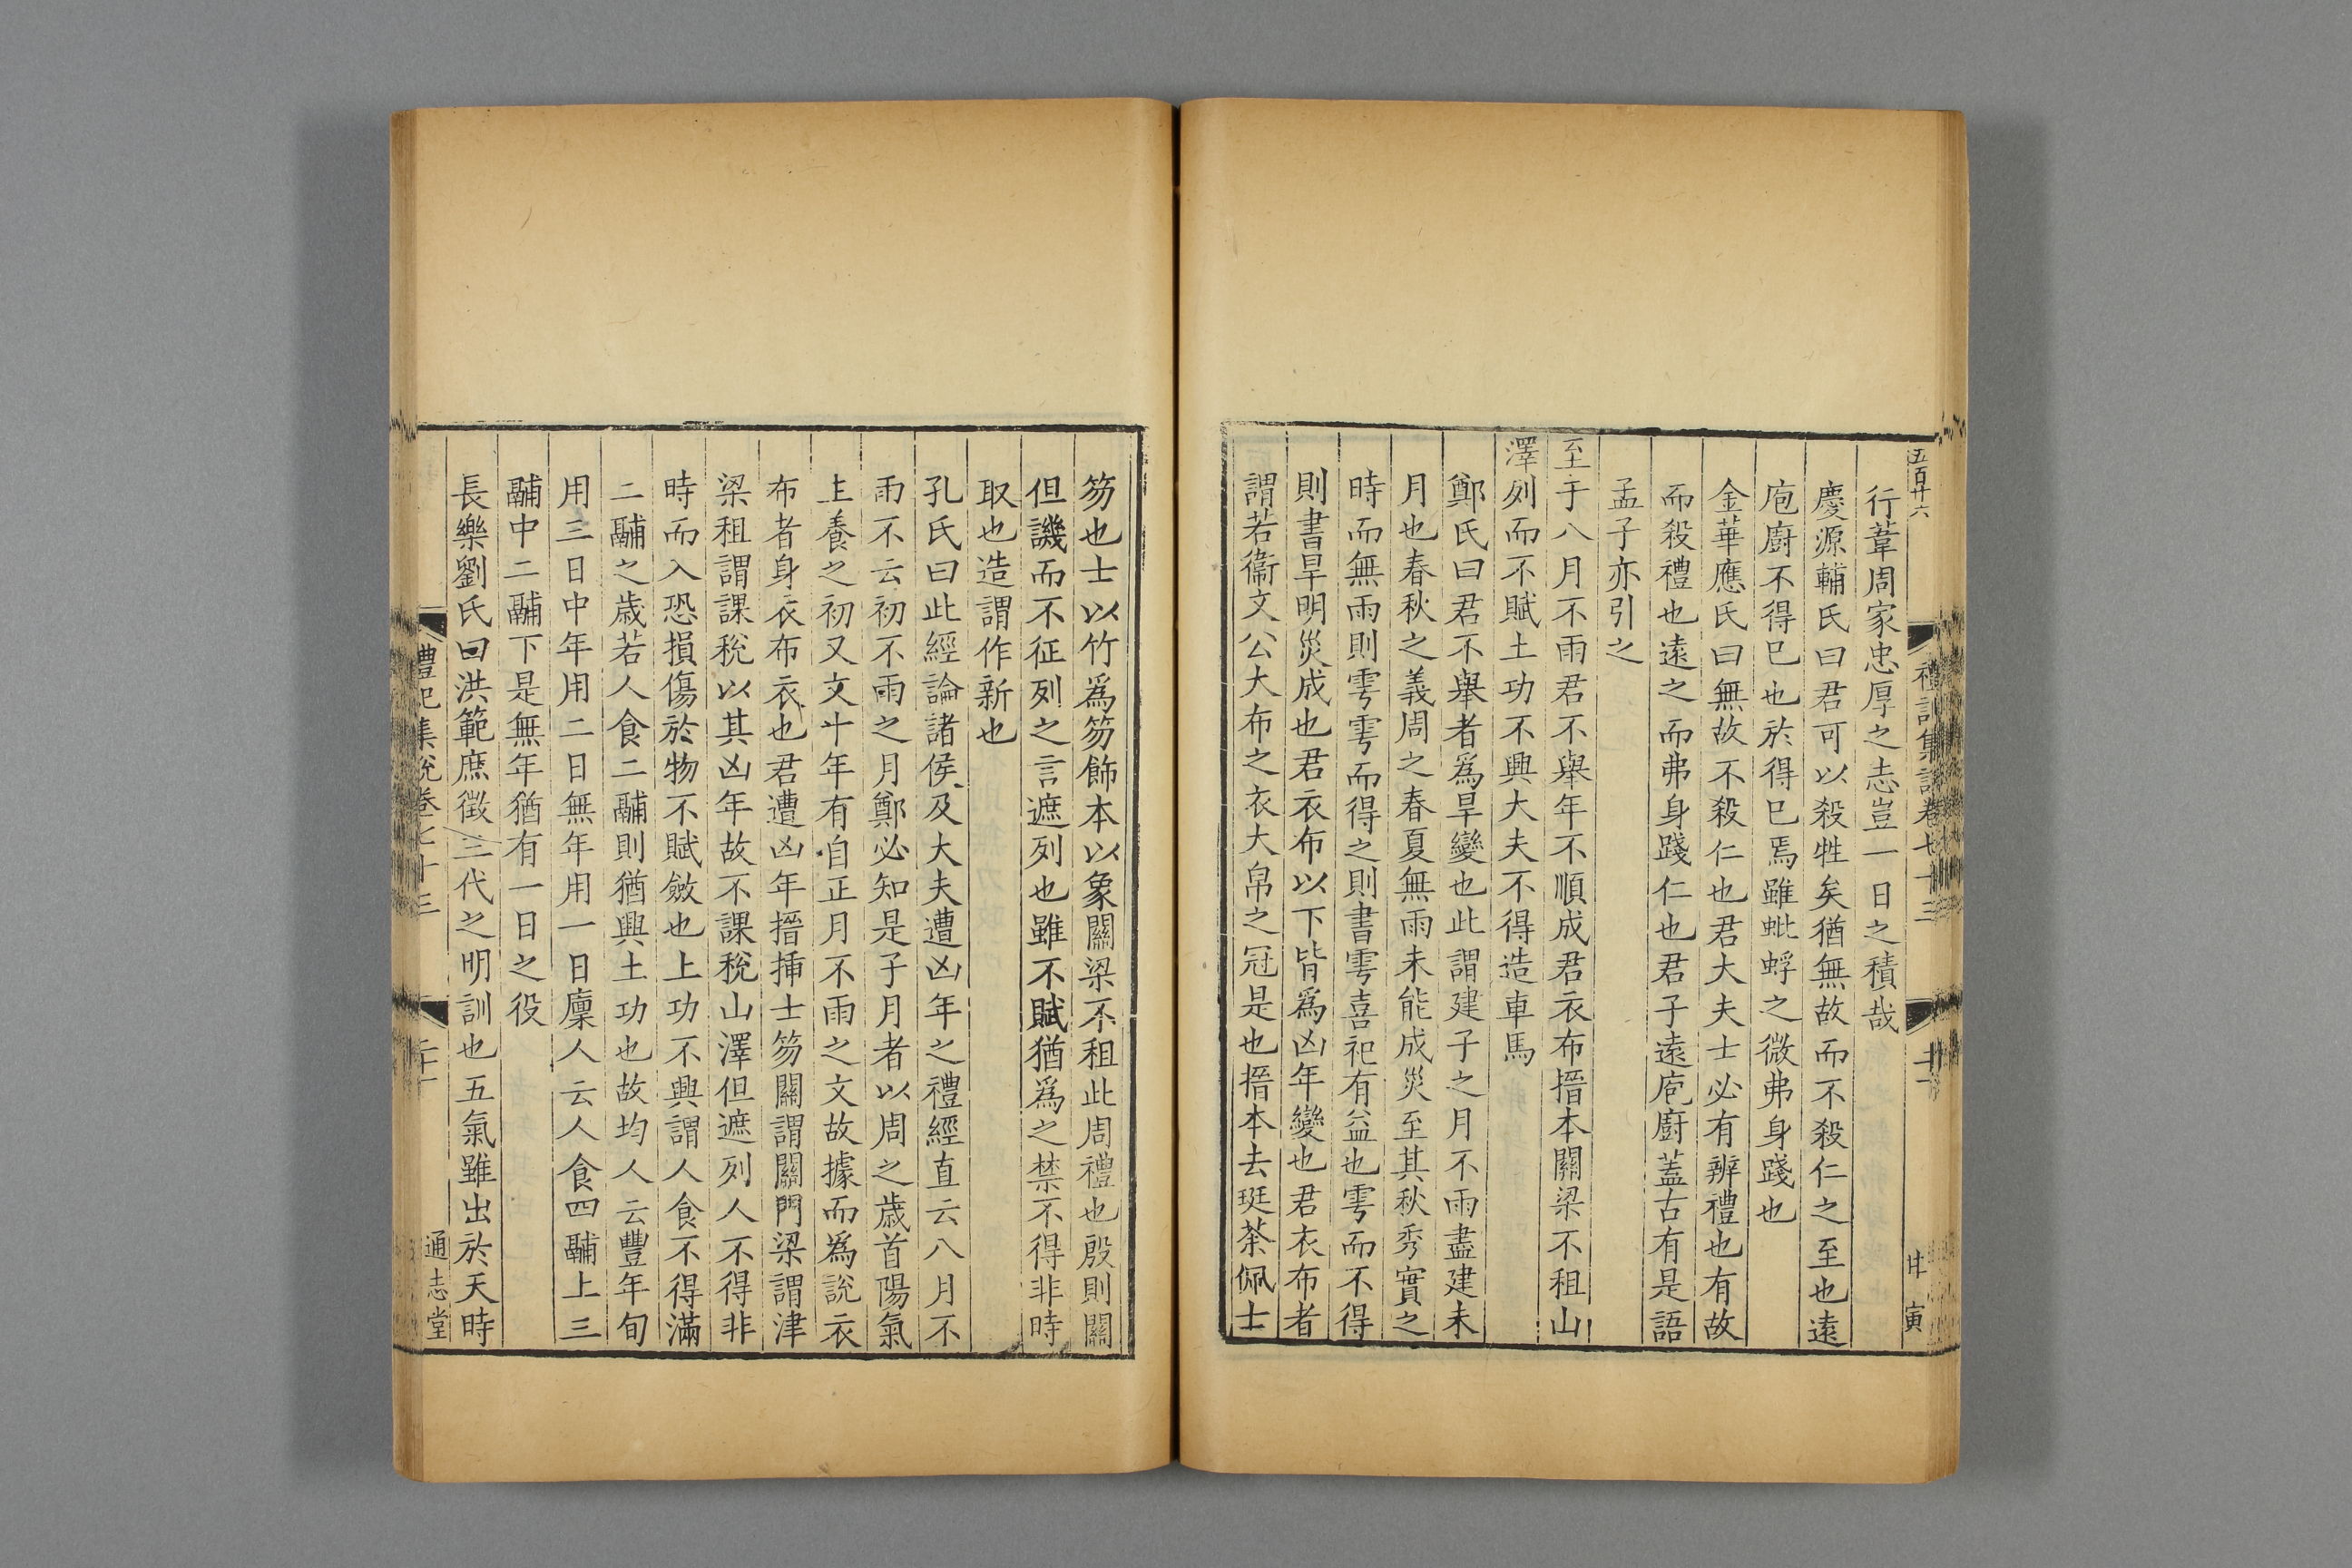 五百廿六
禮記集說卷七十三
廿
寅
行葦周家忠厚之志豈一日之積哉
慶源輔氏曰君可以殺牲矣猶無故而不殺仁之至也遠
庖廚不得已也於得已焉雖蚍蜉之微弗身踐也
金華應氏曰無故不殺仁也君大夫士必有辨禮也有故
而殺禮也遠之而弗身踐仁也君子遠庖廚蓋古有是語
孟子亦引之
至于八月不雨君不舉年不順成君衣布搢本關梁不租山
澤列而不賦土功不興大夫不得造車馬
鄭氏曰君不舉者爲旱變也此謂建子之月不雨盡建未
月也春秋之義周之春夏無雨未能成災至其秋秀實之
時而無雨則雩雩而得之則書雩喜祀有益也雩而不得
則書旱明災成也君衣布以下皆爲凶年變也君衣布者
謂若衞文公大布之衣大帛之冠是也搢本去珽荼佩士
笏也士以竹爲笏飾本以象關梁不租此周禮也殷則關
但譏而不征列之言遮列也雖不賦猶爲之禁不得非時
取也造謂作新也
孔氏曰此經論諸侯及大夫遭凶年之禮經直云八月不
雨不云初不雨之月鄭必知是子月者以周之歲首陽氣
上養之初又文十年有自正月不雨之文故據而爲說衣
布者身衣布衣也君遭凶年搢插士笏關謂關門梁謂津
梁租謂課稅以其凶年故不課稅山澤但遮列人不得非
時而入恐損傷於物不賦斂也上功不興謂人食不得滿
二鬴之歲若人食二鬴則猶興土功也故均人云豐年旬
用三日中年用二日無年用一日廩人云人食四鬴上三
鬴中二鬴下是無年猶有一日之役
長樂劉氏曰洪範庶徵三代之明訓也五氣雖出於天時
禮記集說卷七十三
通志堂